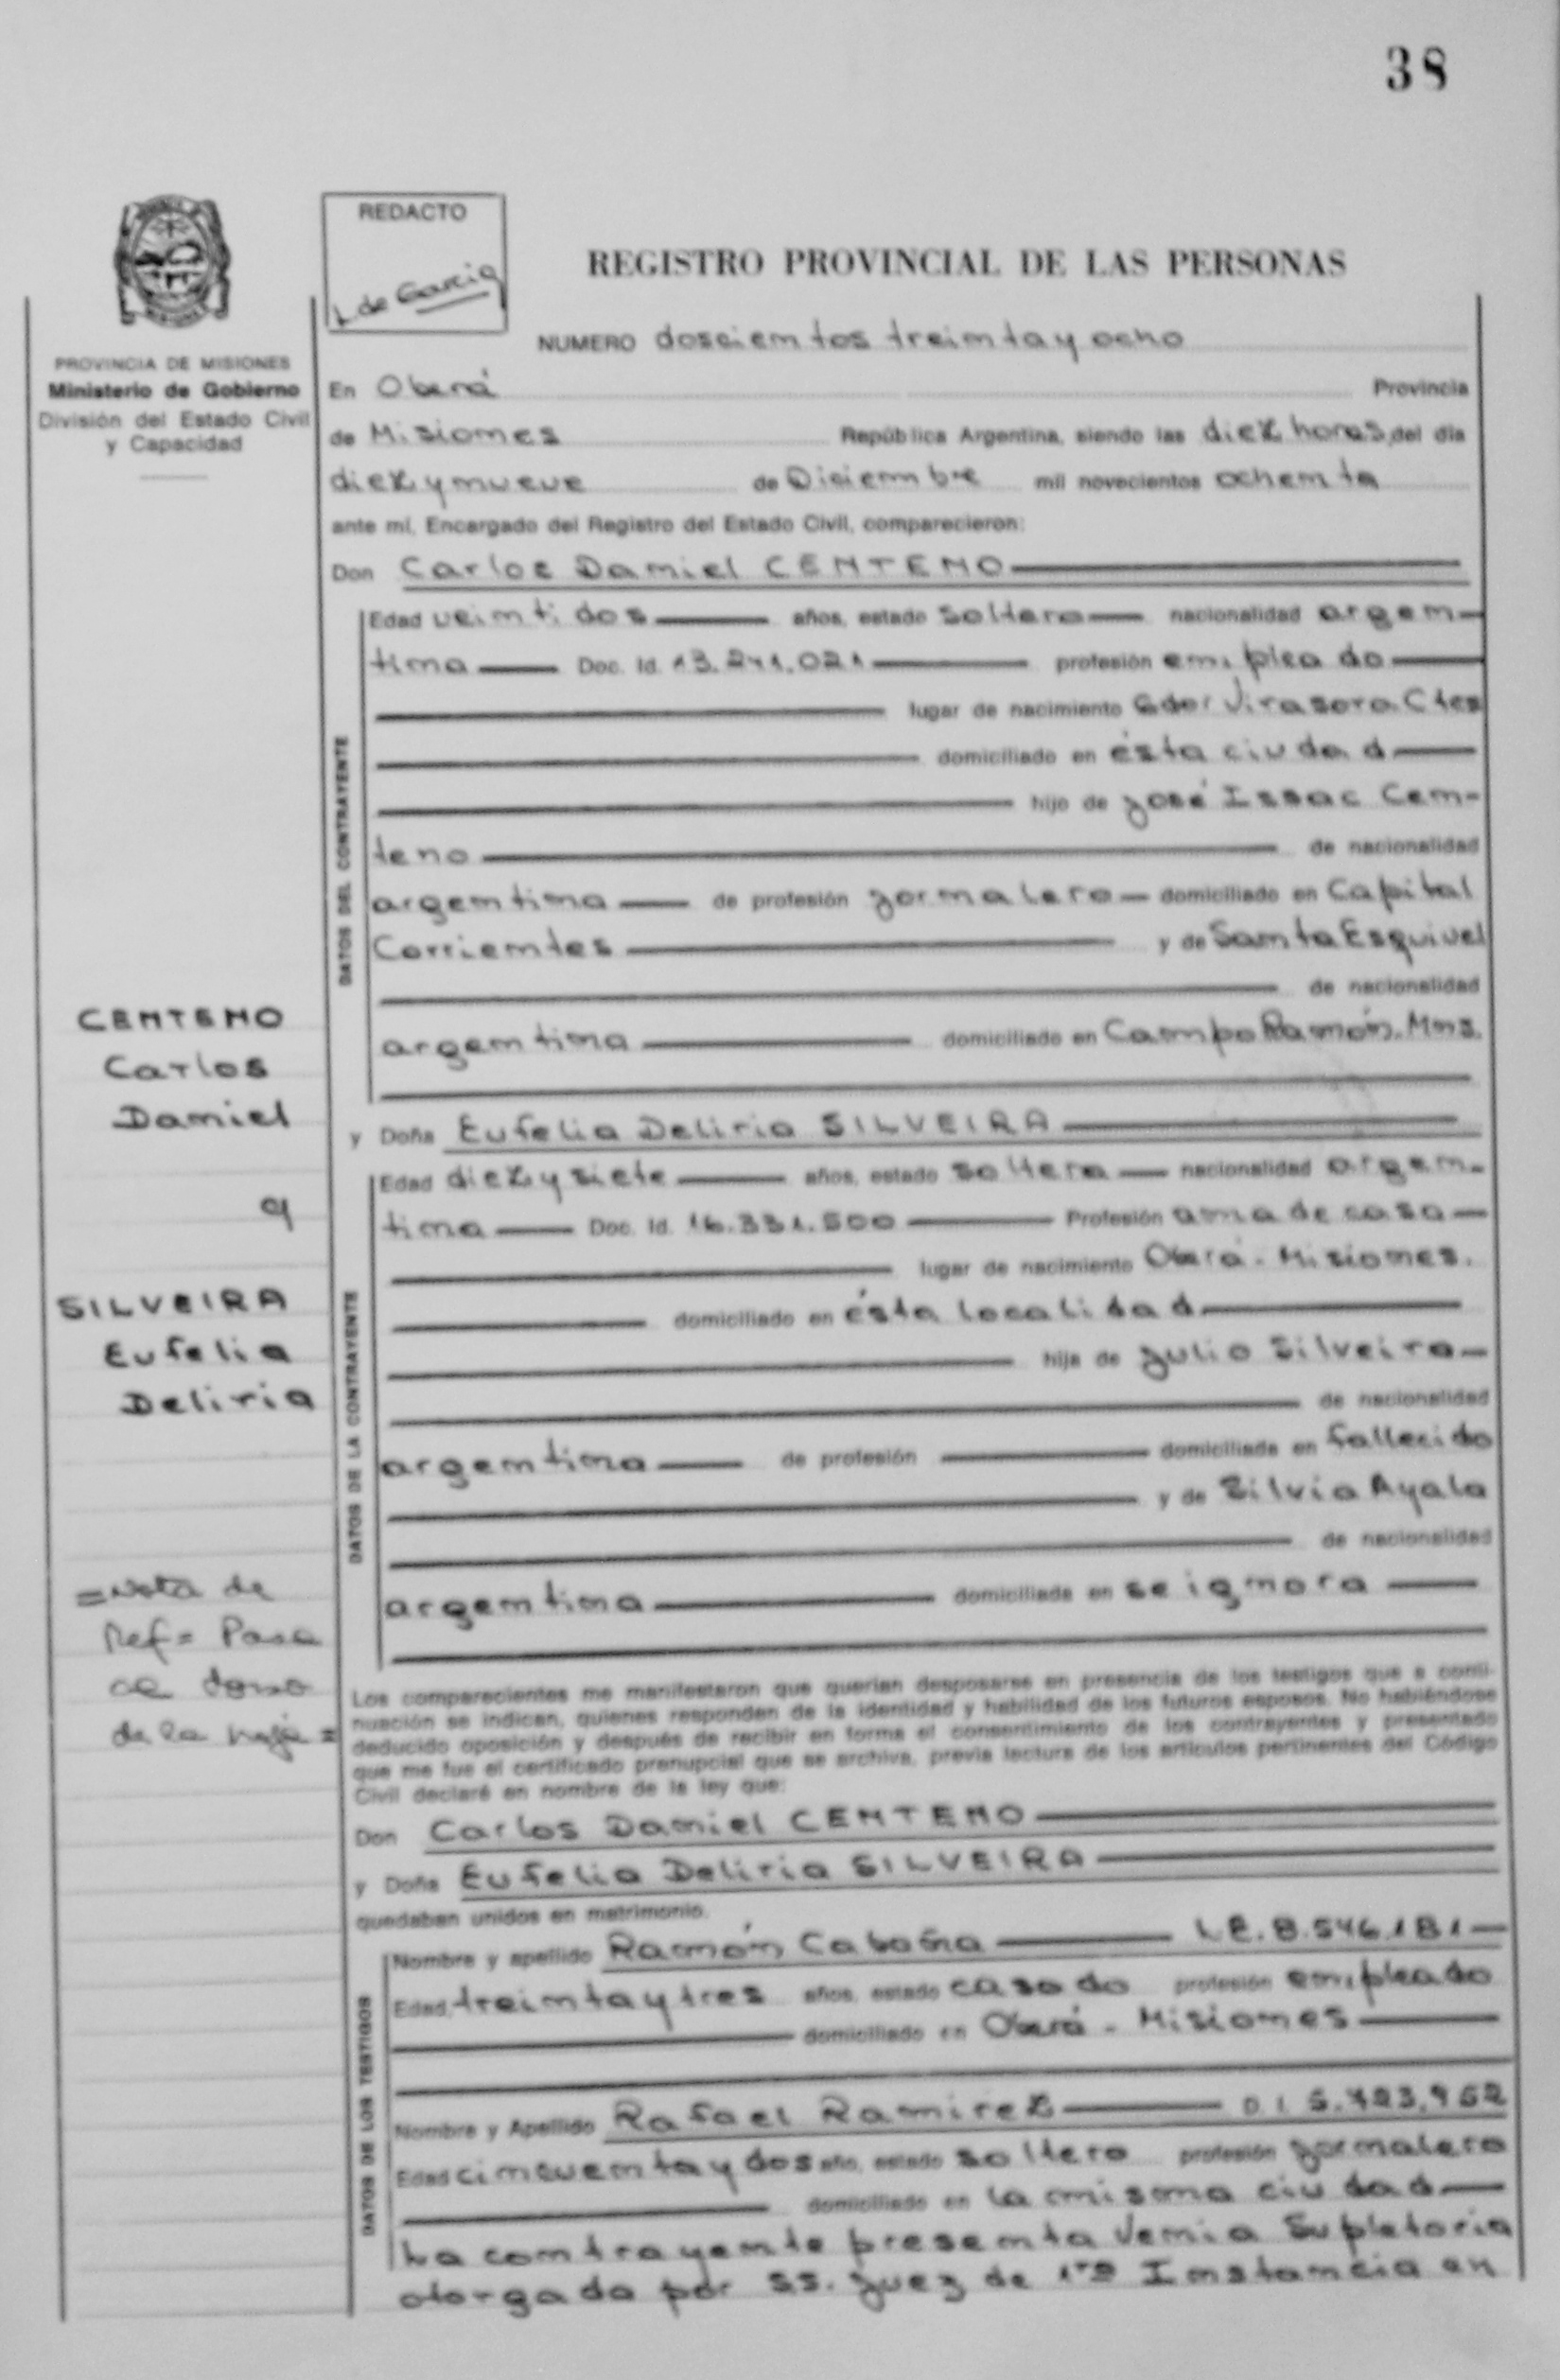 38
REDACTO
L de Garcia
REGISTRO PROVINCIAL DE LAS PERSONAS
NUMERO doscientos treinta y ocho
PROVINCIA DE MISIONES
Ministerio de Gobierno
División del Estado Civil
y Capacidad
En Oberá Provincia
de Misiones República Argentina, siendo las diez horas del día
diez y nueve de Diciembre mil novecientos ochenta
ante mí, Encargado del Registro del Estado Civil, comparecieron:
Don Carlos Daniel CENTENO
DATOS DEL CONTRAYENTE
Edad veinti dos años, estado soltero nacionalidad argen-
tina Doc. Id. 13.241.021 profesión empleado
lugar de nacimiento Gdor Virasoro. Ctes
domiciliado en ésta ciudad
hijo de José Issac Cen-
teno de nacionalidad
argentina de profesión jornalero domiciliado en Capital
Corrientes y de Santa Esquivel
de nacionalidad
argentina domiciliado en Campo Ramón. Mns.
CENTENO
Carlos
Daniel
y
SILVEIRA
Eufelia
Deliria
y Doña Eufelia Deliria SILVEIRA
DATOS DE LA CONTRAYENTE
Edad diez y siete años, estado soltera nacionalidad argen-
tina Doc. Id. 16.331.500 Profesión ama de casa
lugar de nacimiento Oberá - Misiones.
domiciliado en ésta localidad
hija de Julio Silveira
de nacionalidad
argentina de profesión domiciliada en fallecido
y de Silvia Ayala
de nacionalidad
argentina domiciliada en se ignora
=Nota de
Ref= Pasa
al dorso
de la hoja =
Los comparecientes me manifestaron que querían desposarse en presencia de los testigos que a conti-
nuación se indican, quienes responden de la identidad y habilidad de los futuros esposos. No habiéndose
deducido oposición y después de recibir en forma el consentimiento de los contrayentes y presentado
que me fue el certificado prenupcial que se archiva, previa lectura de los artículos pertinentes del Código
Civil declaré en nombre de la ley que:
Don Carlos Daniel CENTENO
y Doña Eufelia Deliria SILVEIRA
quedaban unidos en matrimonio.
DATOS DE LOS TESTIGOS
Nombre y apellido Ramón Cabaña L.E. 8.546.181
Edad treinta y tres años, estado casado profesión empleado
domiciliado en Oberá - Misiones
Nombre y Apellido Rafael Ramirez D.I 5.723.952
Edad cincuenta y dos año, estado soltero profesión jornalero
domiciliado en la misma ciudad
La contrayente presenta Venia Supletoria
otorgada por SS. Juez de 1ra Instancia en